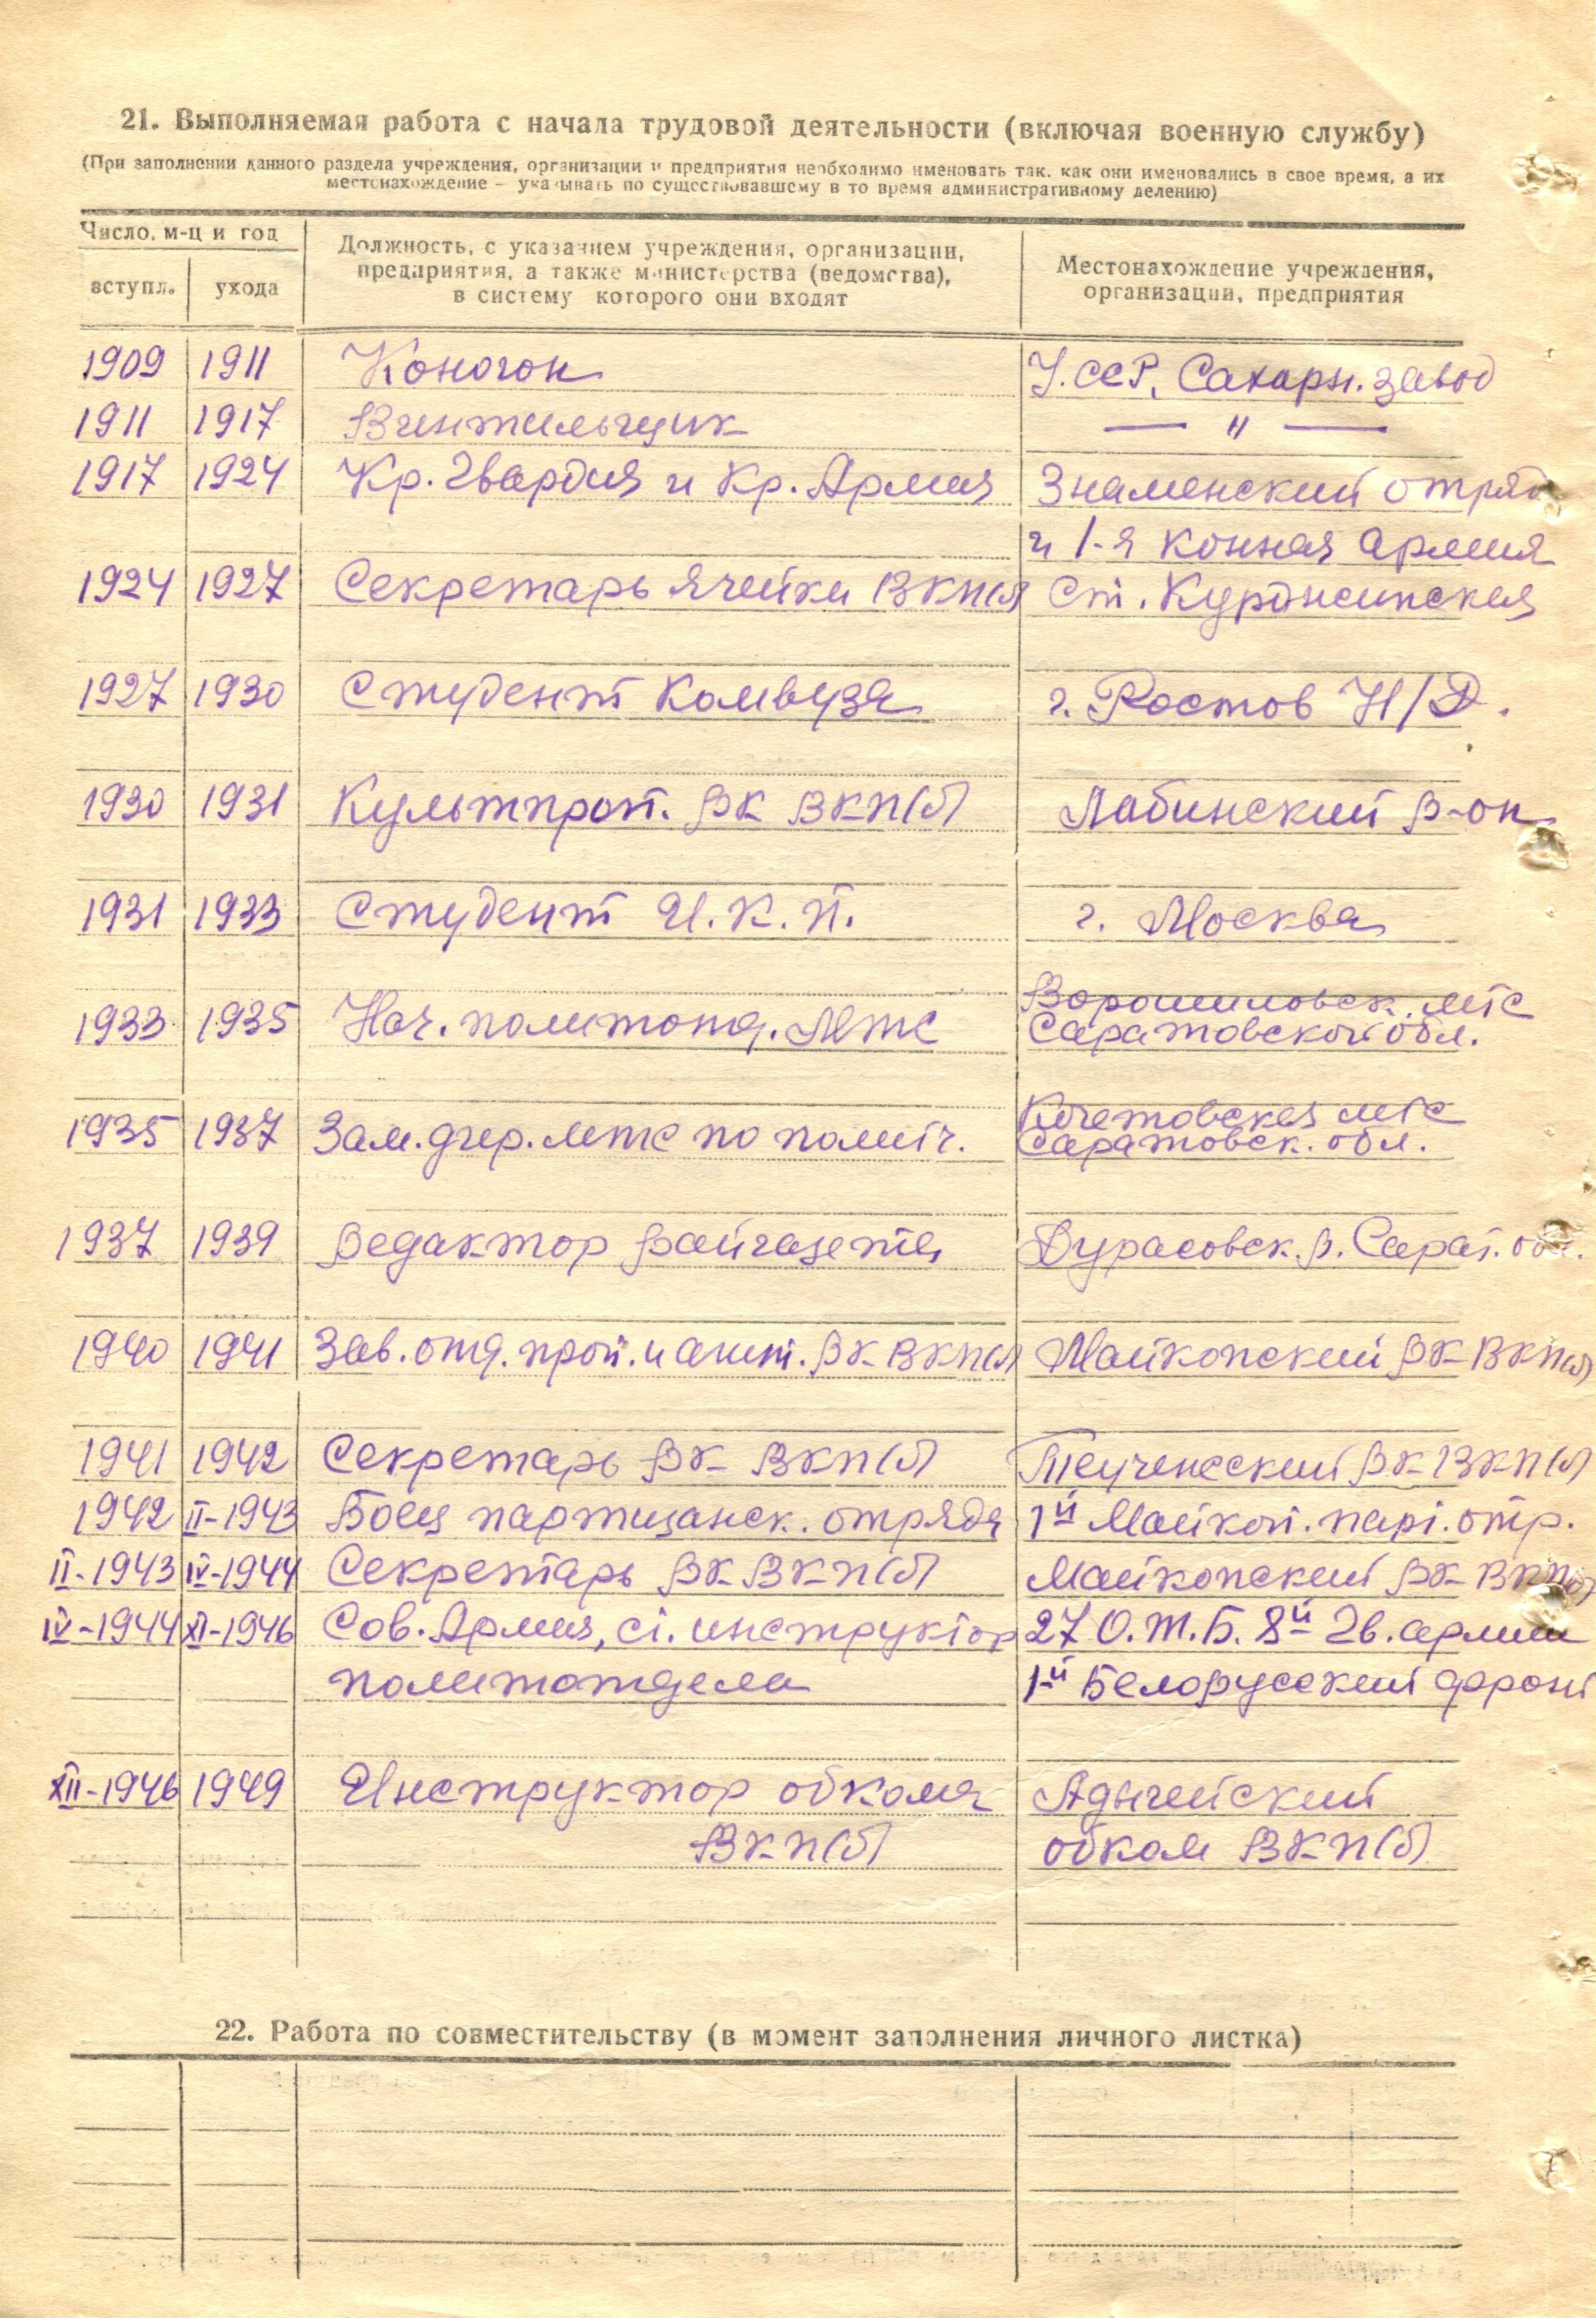 21. Выполняемая работа с начала трудовой деятельности (включая военную службу)
(При заполнении данного раздела учреждения, организации и предприятия необходимо именовать так, как они именовались в свое время, а их
местонахождение — указывать по существовавшему в то время административному делению)
Число, м-ц и год
вступл. ухода
Должность, с указанием учреждения, организации,
предприятия, а также министерства (ведомства),
в систему которого они входят
Местонахождение учреждения,
организации, предприятия
1909 1911 Коногон У.ССР, Сахарн. завод
1911 1917 Винтильщик — " —
1917 1924 Кр. Гвардия и Кр. Армия Знаменский отряд
и 1-я конная армия
1924 1927 Секретарь ячейки ВКП(б) Ст. Курджипская
1927 1930 Студент Комвуза г. Ростов Н/Д.
1930 1931 Культпроп. РК ВКП(б) Лабинский р-он
1931 1933 Студент И.К.П. г. Москва
1933 1935 Нач. политотд. МТС Ворошиловск. МТС
Саратовской обл.
1935 1937 Зам. дир. МТС по полит ч. Кочетовская МТС
Саратовск. обл.
1937 1939 Редактор райгазеты Дурасовск. р. Сарат. обл.
1940 1941 Зав. отд. проп. и агит. РК ВКП(б) Майкопский РК ВКП(б)
1941 1942 Секретарь РК ВКП(б) Теучежский РК ВКП(б)
1942 II-1943 Боец партизанск. отряда 1й Майкоп. парт. отр.
II-1943 IV-1944 Секретарь РК ВКП(б) Майкопский РК ВКП(б)
IV-1944 XI-1946 Сов. Армия, ст. инструктор 27 О.Т.Б. 8й Гв. армии
политотдела 1-й Белорусский фронт
XII-1946 1949 Инструктор обкома Адыгейский
ВКП(б) обком ВКП(б)
22. Работа по совместительству (в момент заполнения личного листка)